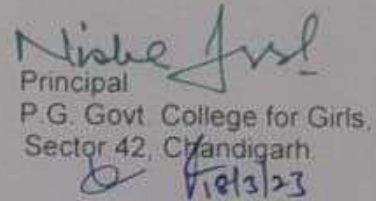 Principal
P.G. Govt College for Girls,
Sector 42, Chandigarh
18/3/23